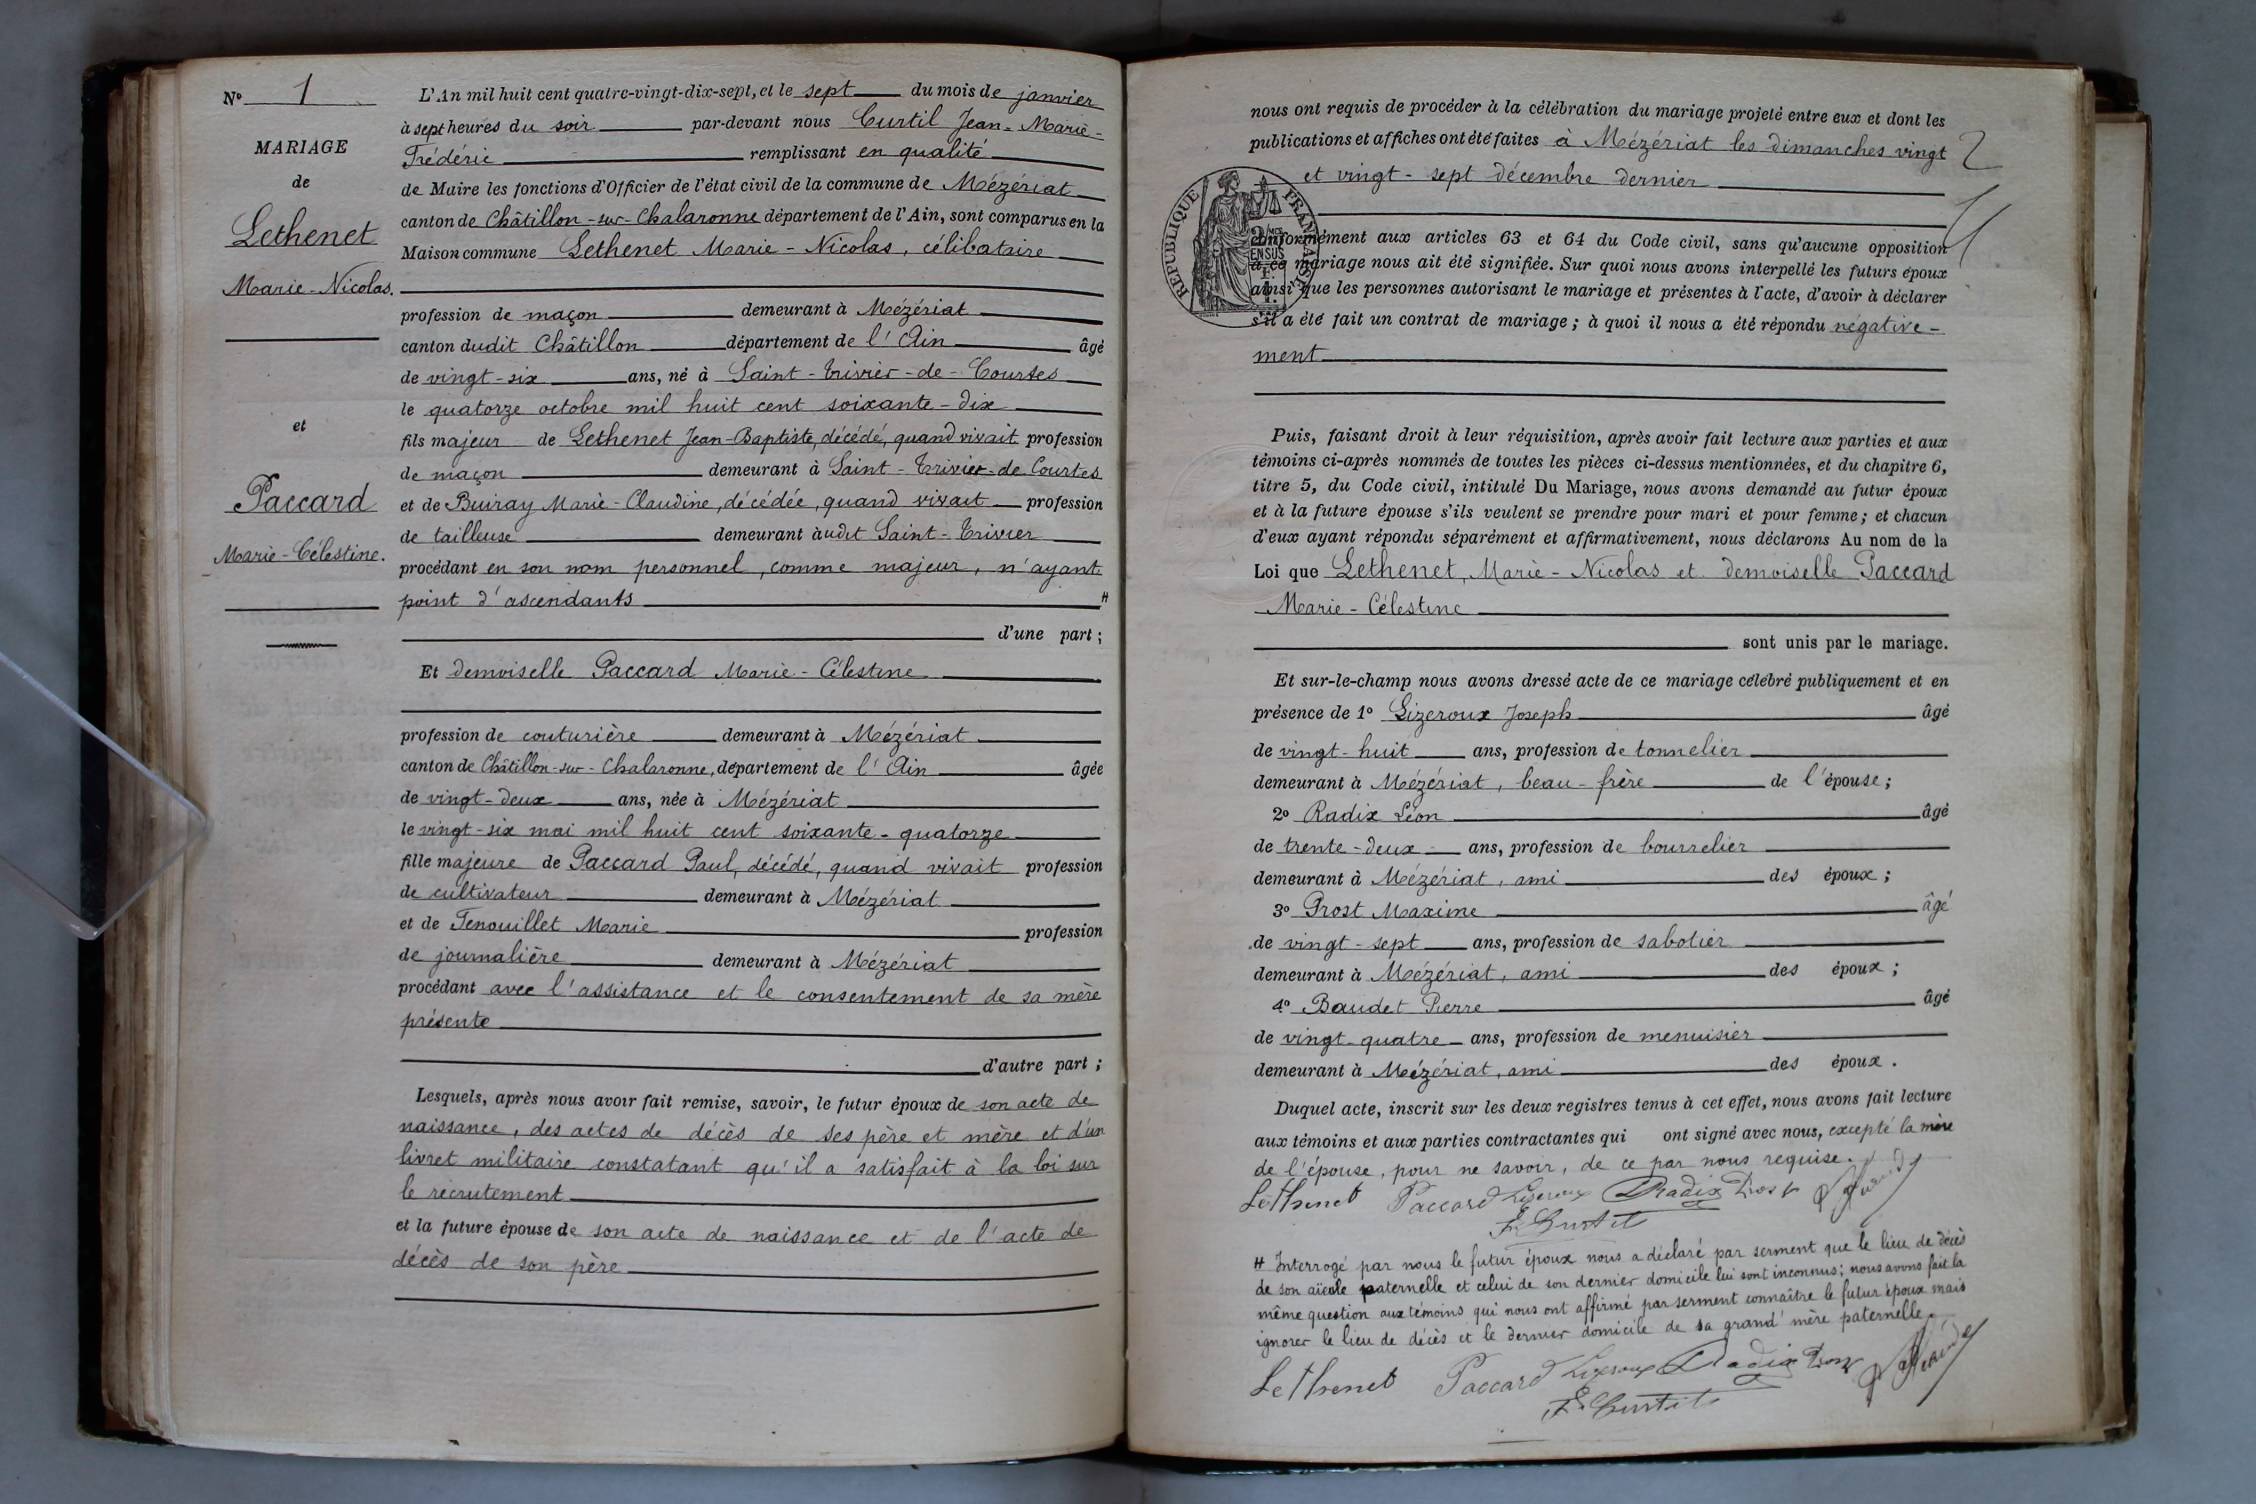 Nº 1
MARIAGE
de
Lethenet
Marie-Nicolas.
et
Paccard
Marie-Célestine.
L'An mil huit cent quatre-vingt-dix-sept, et le sept du mois de janvier
à sept heures du soir par-devant nous Curtil Jean-Marie-
Frédéric remplissant en qualité
de Maire les fonctions d'Officier de l'état civil de la commune de Mézériat
canton de Châtillon-sur-Chalaronne département de l'Ain, sont comparus en la
Maison commune Lethenet Marie-Nicolas, célibataire
profession de maçon demeurant à Mézériat
canton dudit Châtillon département de l'Ain âgé
de vingt-six ans, né à Saint-Trivier-de-Courtes
le quatorze octobre mil huit cent soixante-dix
fils majeur de Lethenet Jean-Baptiste, décédé, quand vivait profession
de maçon demeurant à Saint-Trivier-de Courtes
et de Buiray Marie-Claudine, décédée, quand vivait profession
de tailleuse demeurant àudit Saint-Trivier
procédant en son nom personnel, comme majeur, n'ayant
point d'ascendants #
d'une part;
Et demoiselle Paccard Marie-Célestine
profession de couturière demeurant à Mézériat
canton de Châtillon-sur-Chalaronne, département de l'Ain âgée
de vingt-deux ans, née à Mézériat
le vingt-six mai mil huit cent soixante-quatorze
fille majeure de Paccard Paul, décédé, quand vivait profession
de cultivateur demeurant à Mézériat
et de Tenouillet Marie profession
de journalière demeurant à Mézériat
procédant avec l'assistance et le consentement de sa mère
présente
d'autre part;
Lesquels, après nous avoir fait remise, savoir, le futur époux de son acte de
naissance, des actes de décès de ses père et mère et d'un
livret militaire constatant qu'il a satisfait à la loi sur
le recrutement
et la future épouse de son acte de naissance et de l'acte de
décès de son père
nous ont requis de procéder à la célébration du mariage projeté entre eux et dont les
publications et affiches ont été faites à Mézériat les dimanches vingt
et vingt-sept décembre dernier
2
RÉPUBLIQUE FRANÇAISE
conformément aux articles 63 et 64 du Code civil, sans qu'aucune opposition
à ce mariage nous ait été signifiée. Sur quoi nous avons interpellé les futurs époux
ainsi que les personnes autorisant le mariage et présentes à l'acte, d'avoir à déclarer
s'il a été fait un contrat de mariage; à quoi il nous a été répondu négative-
ment
Puis, faisant droit à leur réquisition, après avoir fait lecture aux parties et aux
témoins ci-après nommés de toutes les pièces ci-dessus mentionnées, et du chapitre 6,
titre 5, du Code civil, intitulé Du Mariage, nous avons demandé au futur époux
et à la future épouse s'ils veulent se prendre pour mari et pour femme; et chacun
d'eux ayant répondu séparément et affirmativement, nous déclarons Au nom de la
Loi que Lethenet, Marie-Nicolas et demoiselle Paccard
Marie-Célestine
sont unis par le mariage.
Et sur-le-champ nous avons dressé acte de ce mariage célébré publiquement et en
présence de 1º Lizeroux Joseph âgé
de vingt-huit ans, profession de tonnelier
demeurant à Mézériat, beau-frère de l'épouse;
2º Radix Léon âgé
de trente-deux ans, profession de bourrelier
demeurant à Mézériat, ami des époux;
3º Prost Maxime âgé
de vingt-sept ans, profession de sabotier
demeurant à Mézériat, ami des époux;
4º Baudet Pierre âgé
de vingt-quatre ans, profession de menuisier
demeurant à Mézériat, ami des époux.
Duquel acte, inscrit sur les deux registres tenus à cet effet, nous avons fait lecture
aux témoins et aux parties contractantes qui ont signé avec nous, excepté la mère
de l'épouse, pour ne savoir, de ce par nous requise.
Lethenet Paccard Lizeroux Radix Prost
F. Curtil
# Interrogé par nous le futur époux nous a déclaré par serment que le lieu de décès
de son aïeule paternelle et celui de son dernier domicile lui sont inconnus; nous avons fait la
même question aux témoins qui nous ont affirmé par serment connaître le futur époux mais
ignorer le lieu de décès et le dernier domicile de sa grand'mère paternelle.
Lethenet Paccard Lizeroux Radix Prost
F. Curtil